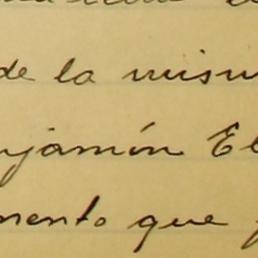 de la mism
njamón El
mento que